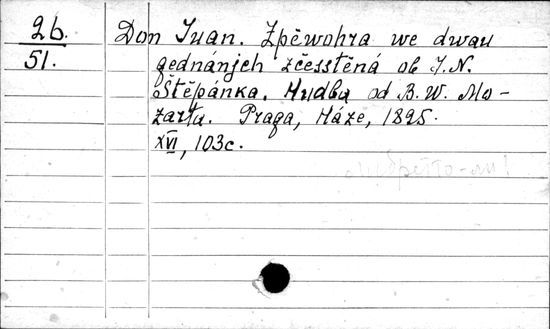 26.
51.
Don Juan. Zpěwohra we dwau
gednánjch zčesstěná od J. N.
Štěpánka. Hudba od B. W. Mo-
zarta. Praga, Háze, 1825.
XVI, 103c.